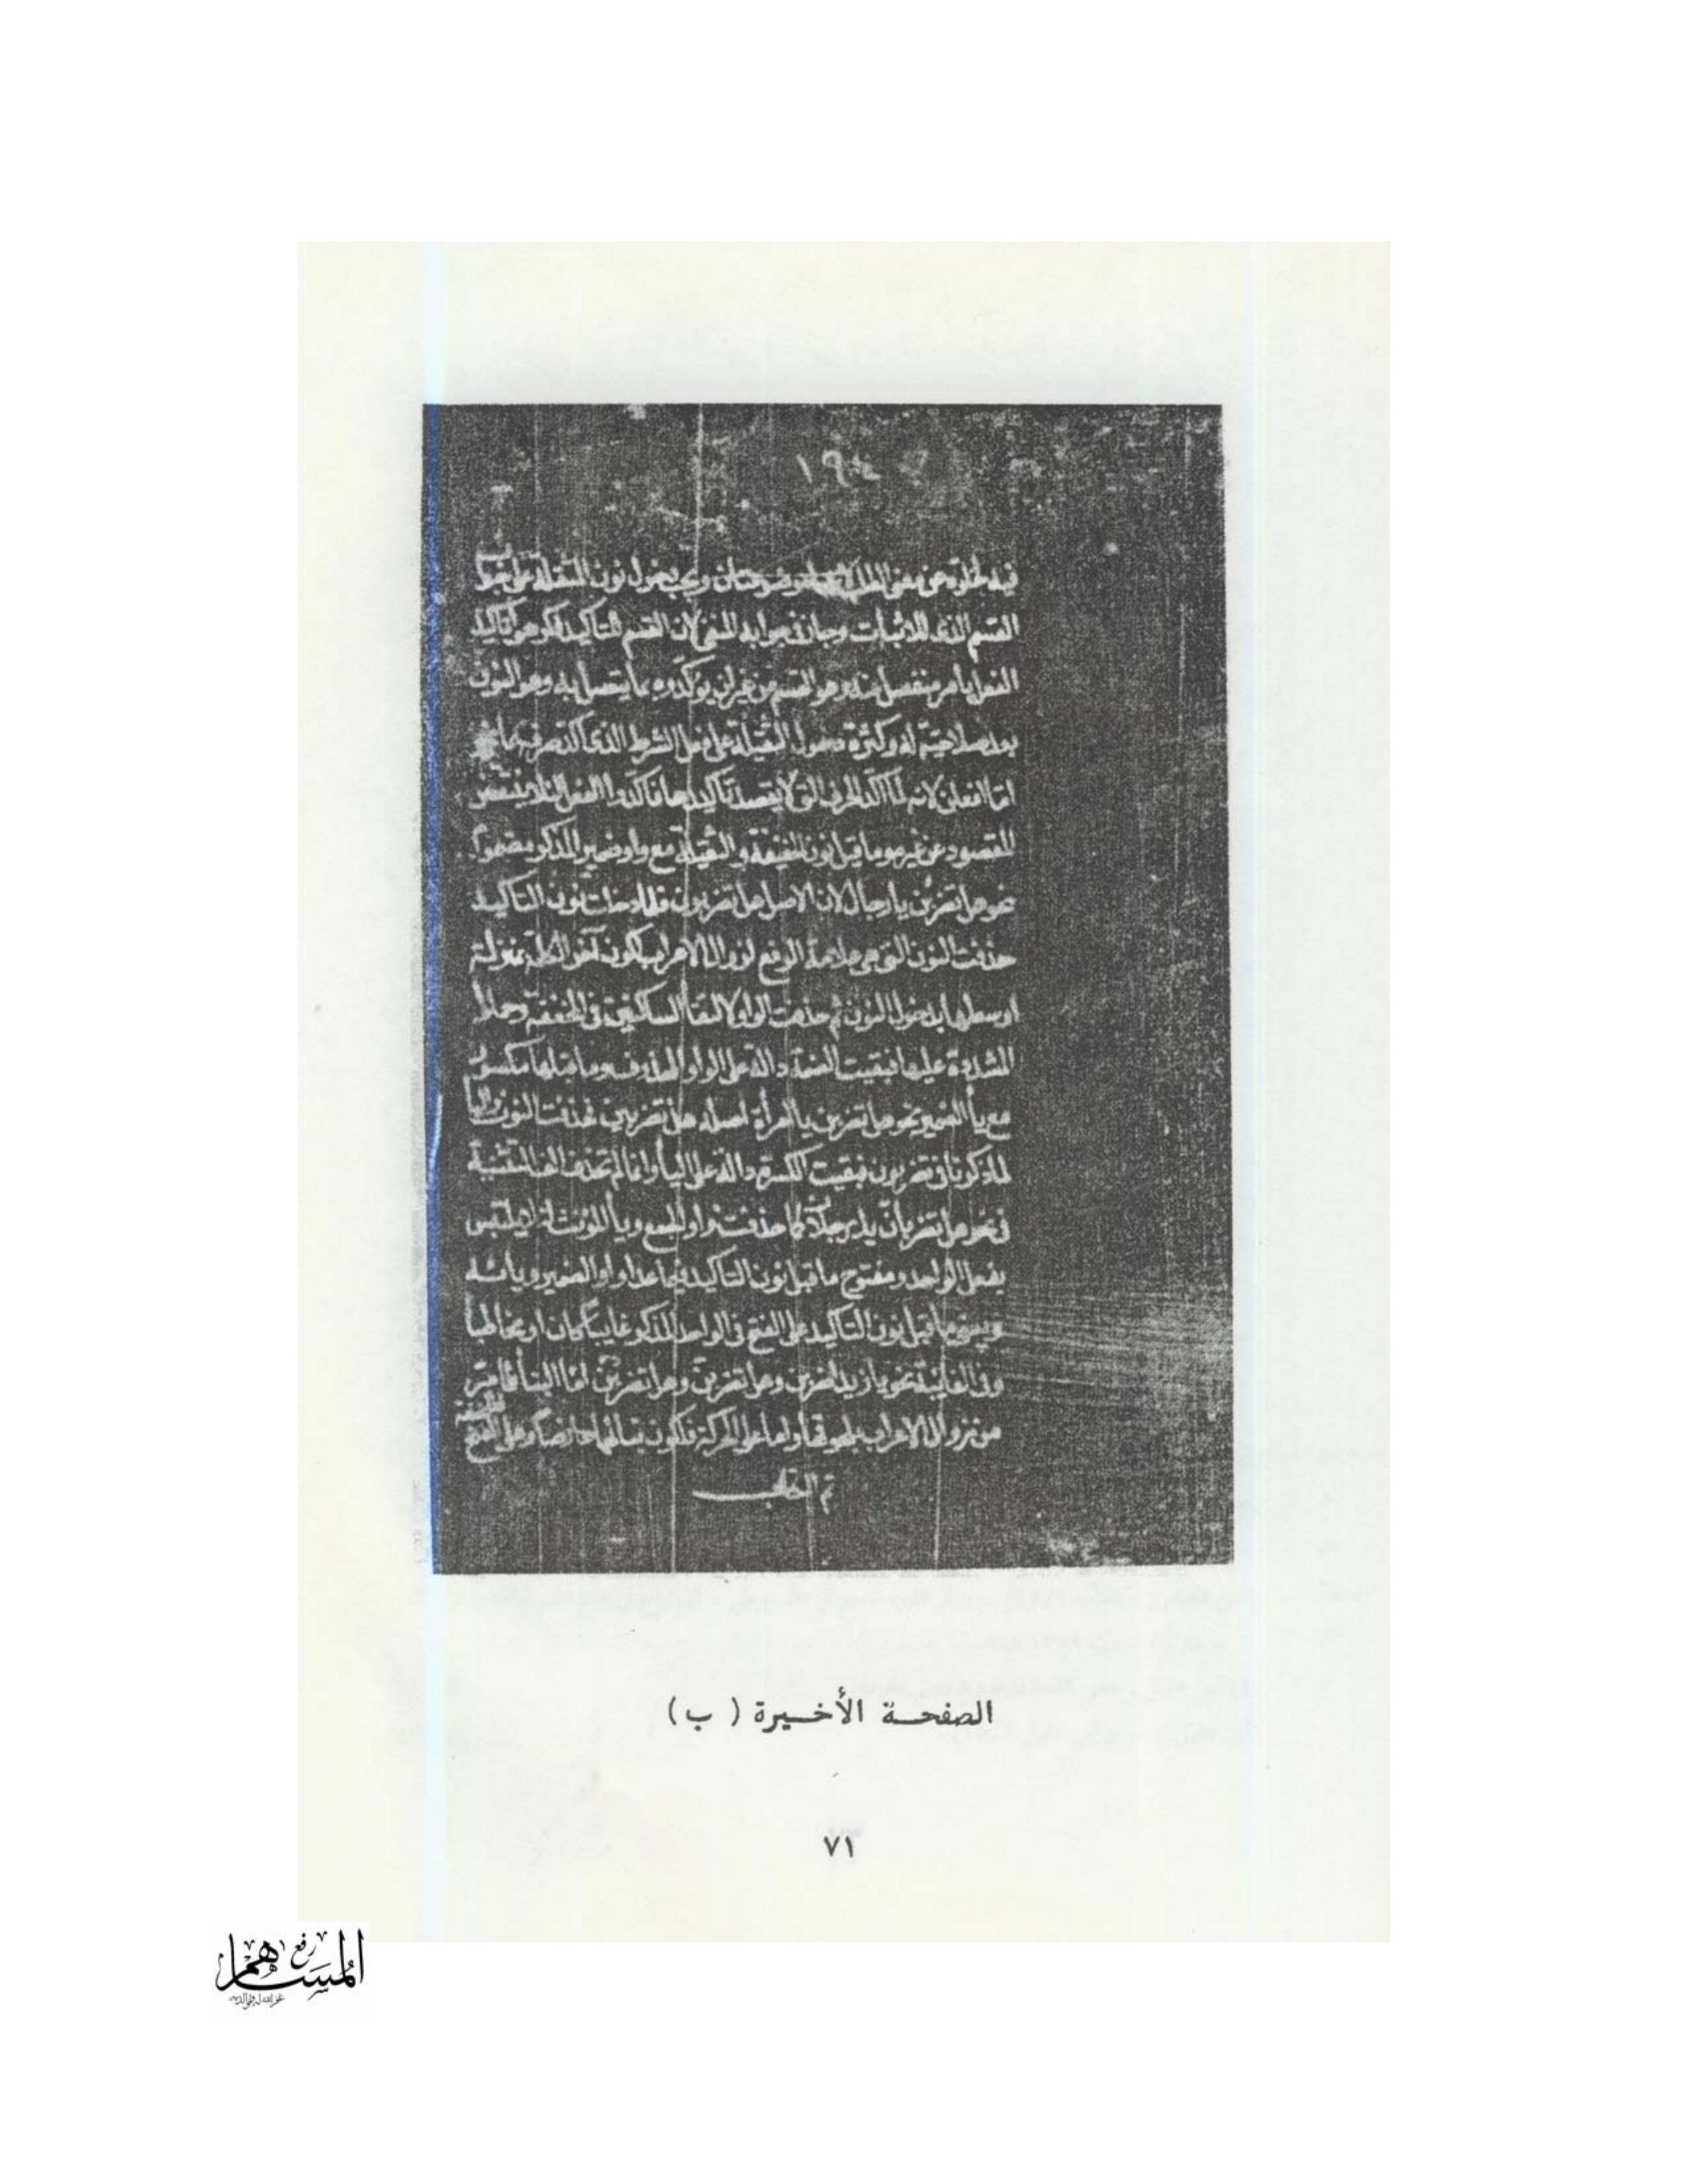 ١٩٤
فيه لخلوه عن معنى الطلب ويجب دخول نون الثقيلة على جواب
القسم للاثبات وجاز في جوابه المنفي لان القسم للتاكيد فكرهوا تاكيد
الفعل بامر منفصل منه وهو القسم من غير ان يوكدوه بما يتصل به وهو النون
بعد صلاحيته له وكثرة دخول الثقيلة على فعل الشرط الذي اكد حرفه بما
اما تفعلن لانه لما اكد الحرف التي لا يقصد تاكيدها فاكدوا الفعل لئلا ينتقص
المقصود عن غيره وما قبل نون الخفيفة والثقيلة مع واو ضمير المذكر مضموم
نحو هل تضربن يا رجال لان الاصل هل تضربون فلما دخلت نون التاكيد
حذفت النون التي هي علامة الرفع لزوال الاعراب بكون آخر الكلمة بمنزلة
اوسطها بدخول النون ثم حذفت الواو لالتقا الساكنين في المخففة وحملا
المشددة عليها فبقيت الضمة دالة على الواو المحذوفة وما قبلها مكسور
مع يأ الضمير نحو هل تضربن يا امرأة اصله هل تضربين فحذفت النون واليأ
لما ذكرنا في تضربون فبقيت الكسرة دالة على اليأ وانما لم تحذف الف التثنية
في نحو هل تضربان يا رجلان كما حذفت واو الجمع ويأ المؤنث لئلا يلتبس
بفعل الواحد ومفتوح ما قبل نون التاكيد فيما عدا واو الضمير ويائه
ويبنى ما قبل نون التاكيد على الفتح في الواحد المذكر غايبا كان او مخاطبا
وفي الغايبة نحو يا زيد اضربن وهل تضربن وهل تضربن اما البنأ فلما مر
من زوال الاعراب بلحوقها واما على الحركة فلكون عارضا وعلى الفتح
للخفة
تم الكتاب
الصفحة الأخيرة ( ب )
٧١
رفع
المساهم
غفر الله له ولوالديه